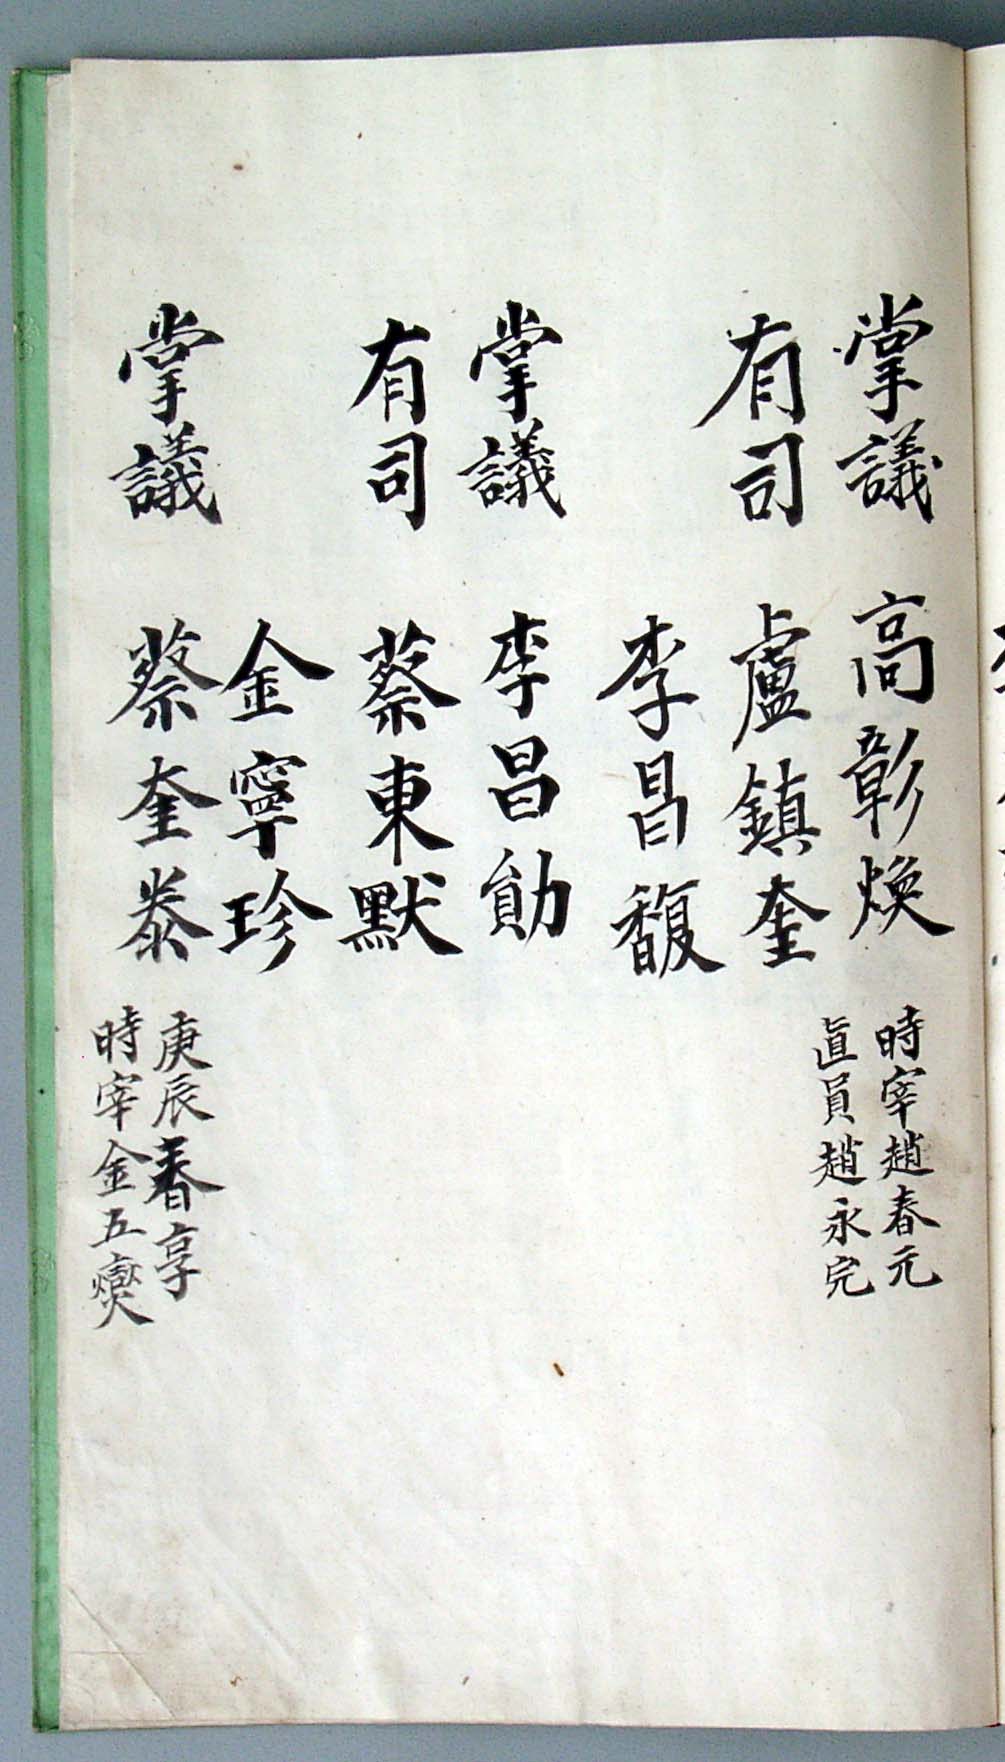 掌議 高彰煥 時宰趙春元
直員趙永完
有司 盧鎮奎
李昌馥
掌議 李昌勛
有司 蔡東默
金寧珍
掌議 蔡奎泰 庚辰春享
時宰金五爕